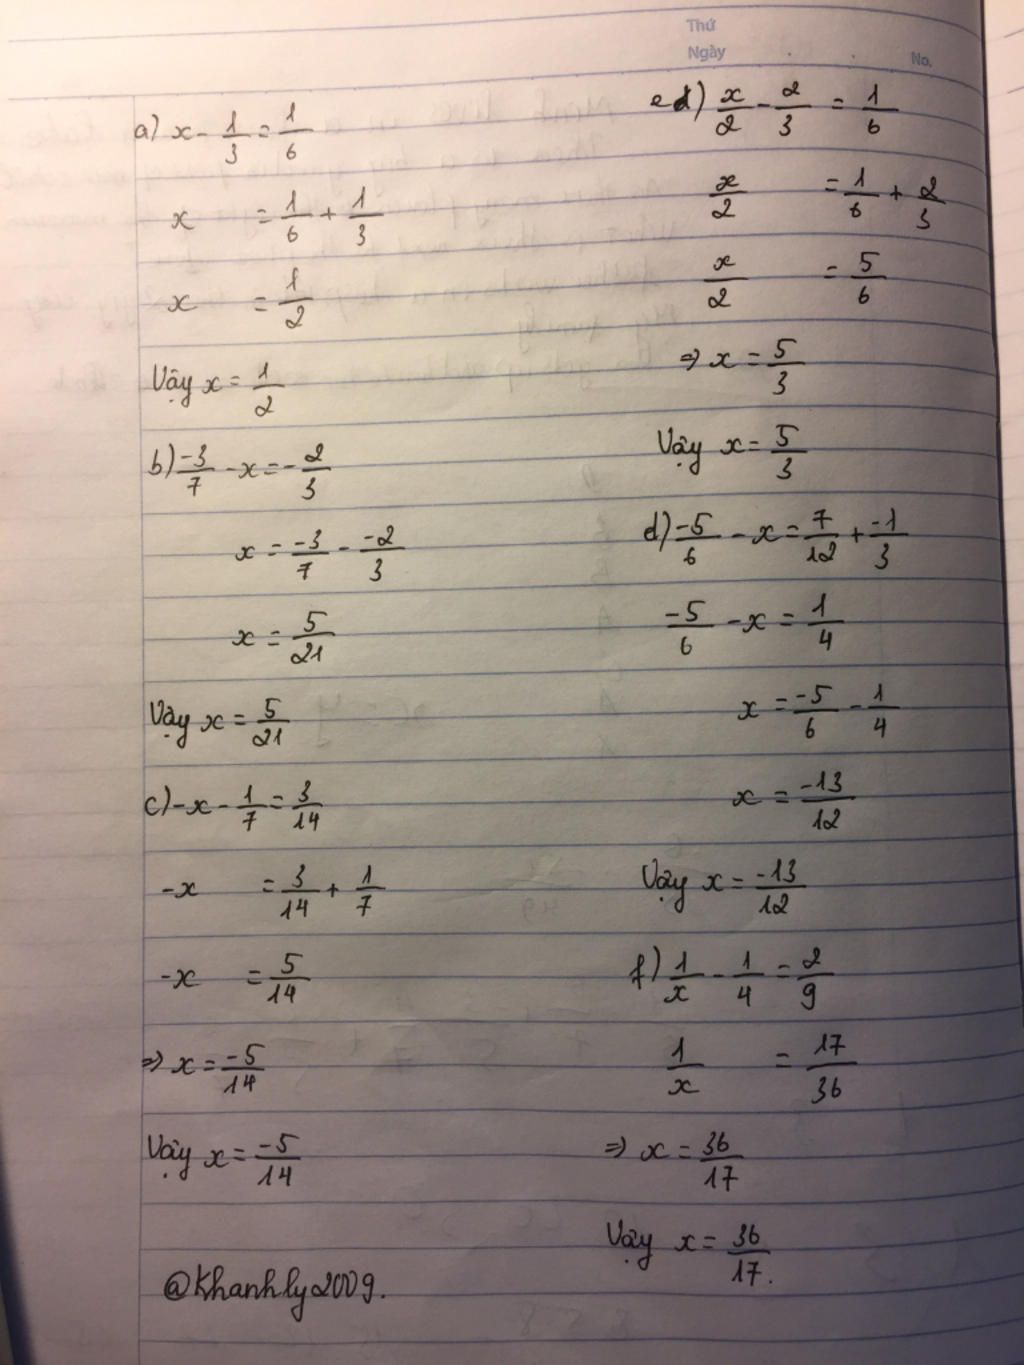 Thứ
Ngày
No.
a) x - 1/3 = 1/6
x = 1/6 + 1/3
x = 1/2
Vậy x = 1/2
b) -3/7 - x = -2/3
x = -3/7 - -2/3
x = 5/21
Vậy x = 5/21
c) -x - 1/7 = 3/14
-x = 3/14 + 1/7
-x = 5/14
=> x = -5/14
Vậy x = -5/14
@Khanhly2009.
e) x/2 - 2/3 = 1/6
x/2 = 1/6 + 2/3
x/2 = 5/6
=> x = 5/3
Vậy x = 5/3
d) -5/6 - x = 7/12 + -1/3
-5/6 - x = 1/4
x = -5/6 - 1/4
x = -13/12
Vậy x = -13/12
f) 1/x - 1/4 = 2/9
1/x = 17/36
=> x = 36/17
Vậy x = 36/17.